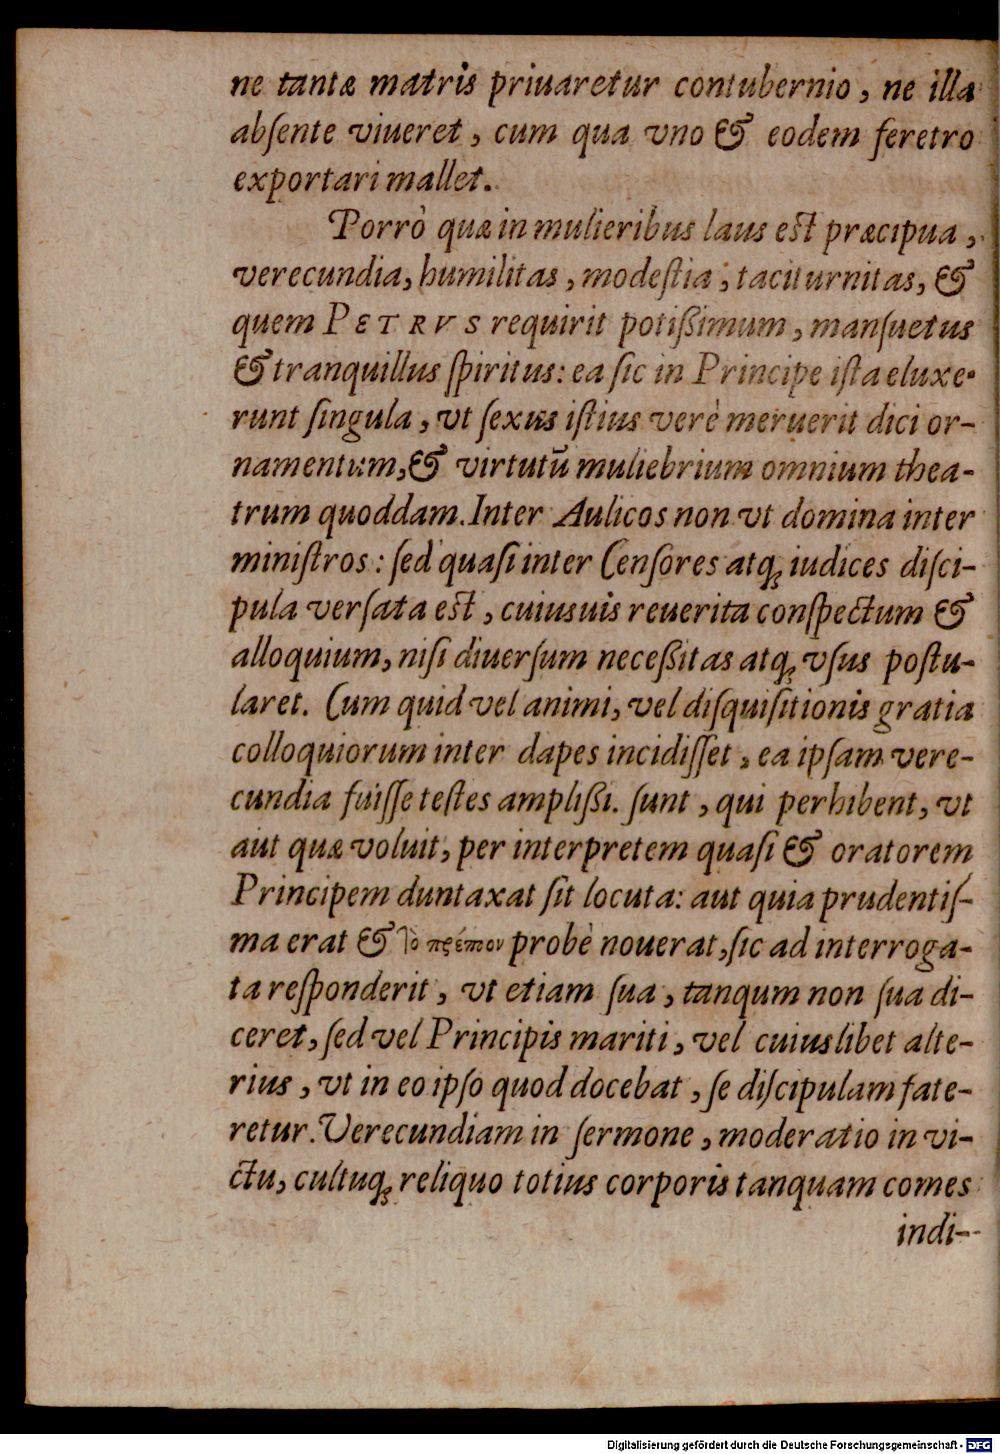 ne tantæ matris priuaretur contubernio, ne illa
abſente viueret, cum qua vno & eodem feretro
exportari mallet.
Porrò quæ in mulieribus laus est præcipua,
verecundia, humilitas, modeſtia, taciturnitas, &
quem PETRVS requirit potißimum, manſuetus
& tranquillus ſpiritus: ea ſic in Principe iſta eluxe-
runt ſingula, vt ſexus iſtius verè meruerit dici or-
namentum, & virtutũ muliebrium omnium thea-
trum quoddam. Inter Aulicos non vt domina inter
miniſtros: ſed quaſi inter Cenſores atq; iudices diſci-
pula verſata est, cuiusuis reuerita conſpectum &
alloquium, niſi diuerſum neceßitas atq; vſus poſtu-
laret. Cum quid vel animi, vel diſquiſitionis gratia
colloquiorum inter dapes incidiſſet, ea ipſam vere-
cundia fuiſſe teſtes amplißi. ſunt, qui perhibent, vt
aut quæ voluit, per interpretem quaſi & oratorem
Principem duntaxat ſit locuta: aut quia prudentiſ-
ma erat & τὸ πρέπον probè nouerat, ſic ad interroga-
ta reſponderit, vt etiam ſua, tanqum non ſua di-
ceret, ſed vel Principis mariti, vel cuiuslibet alte-
rius, vt in eo ipſo quod docebat, ſe diſcipulam fate-
retur. Verecundiam in ſermone, moderatio in vi-
ctu, cultuq; reliquo totius corporis tanquam comes
indi-
Digitalisierung gefördert durch die Deutsche Forschungsgemeinschaft - DFG